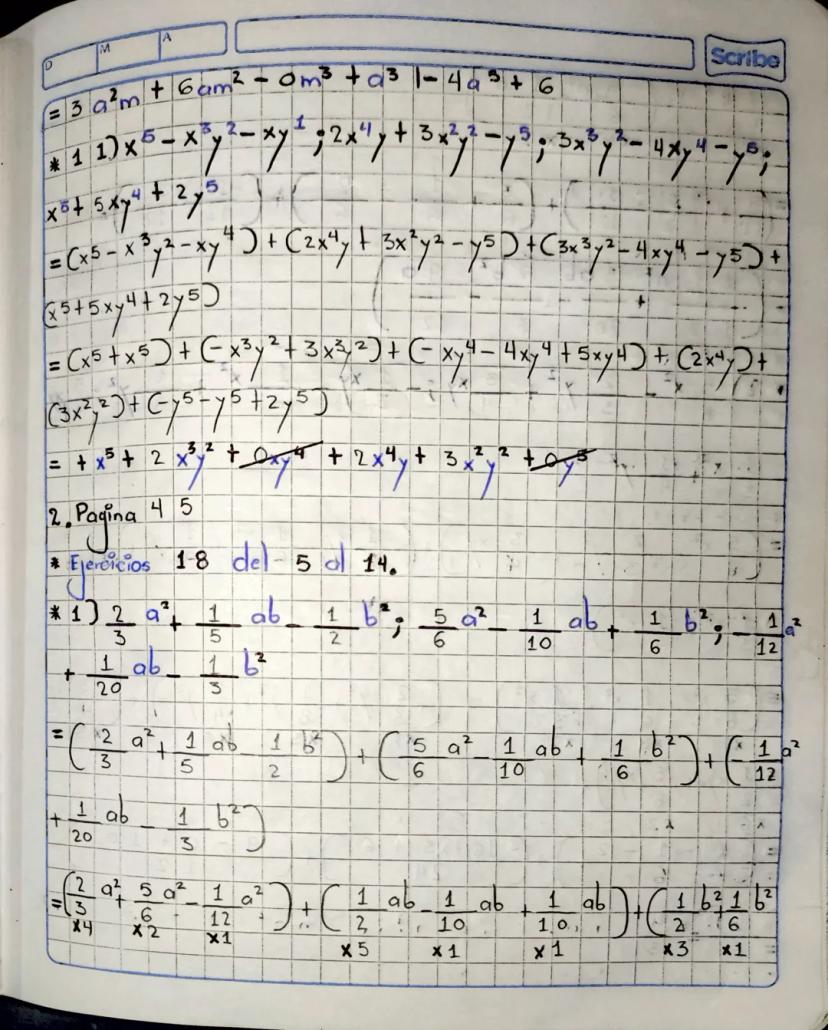 D M A
Scribe
= 3 a²m + 6am² - 0m³ + a³ |- 4a³ + 6
* 1 1) x⁵ - x³y² - xy¹ ; 2x⁴y + 3x²y² - y⁵ ; 3x³y² - 4xy⁴ - y⁵ ;
x⁵ + 5xy⁴ + 2y⁵
= (x⁵ - x³y² - xy⁴) + (2x⁴y + 3x²y² - y⁵) + (3x³y² - 4xy⁴ - y⁵) +
(x⁵ + 5xy⁴ + 2y⁵)
= (x⁵ + x⁵) + (-x³y² + 3x³y²) + (-xy⁴ - 4xy⁴ + 5xy⁴) + (2x⁴y) +
(3x²y²) + (-y⁵ - y⁵ + 2y⁵)
= + x⁵ + 2 x³y² + 0xy⁴ + 2x⁴y + 3x²y² + 0y⁵
2. Pagina 4 5
* Ejercicios 18 del 5 al 14.
* 1) 2/3 a² + 1/5 ab - 1/2 b² ; 5/6 a² - 1/10 ab + 1/6 b² ; - 1/12 a²
+ 1/20 ab - 1/3 b²
= (2/3 a² + 1/5 ab - 1/2 b²) + (5/6 a² - 1/10 ab + 1/6 b²) + (- 1/12 a²
+ 1/20 ab - 1/3 b²)
= (2/3 a² + 5/6 a² - 1/12 a²) + (1/2 ab - 1/10 ab + 1/10 ab) + (1/2 b² + 1/6 b²
x4 x2 x1 x5 x1 x1 x3 x1